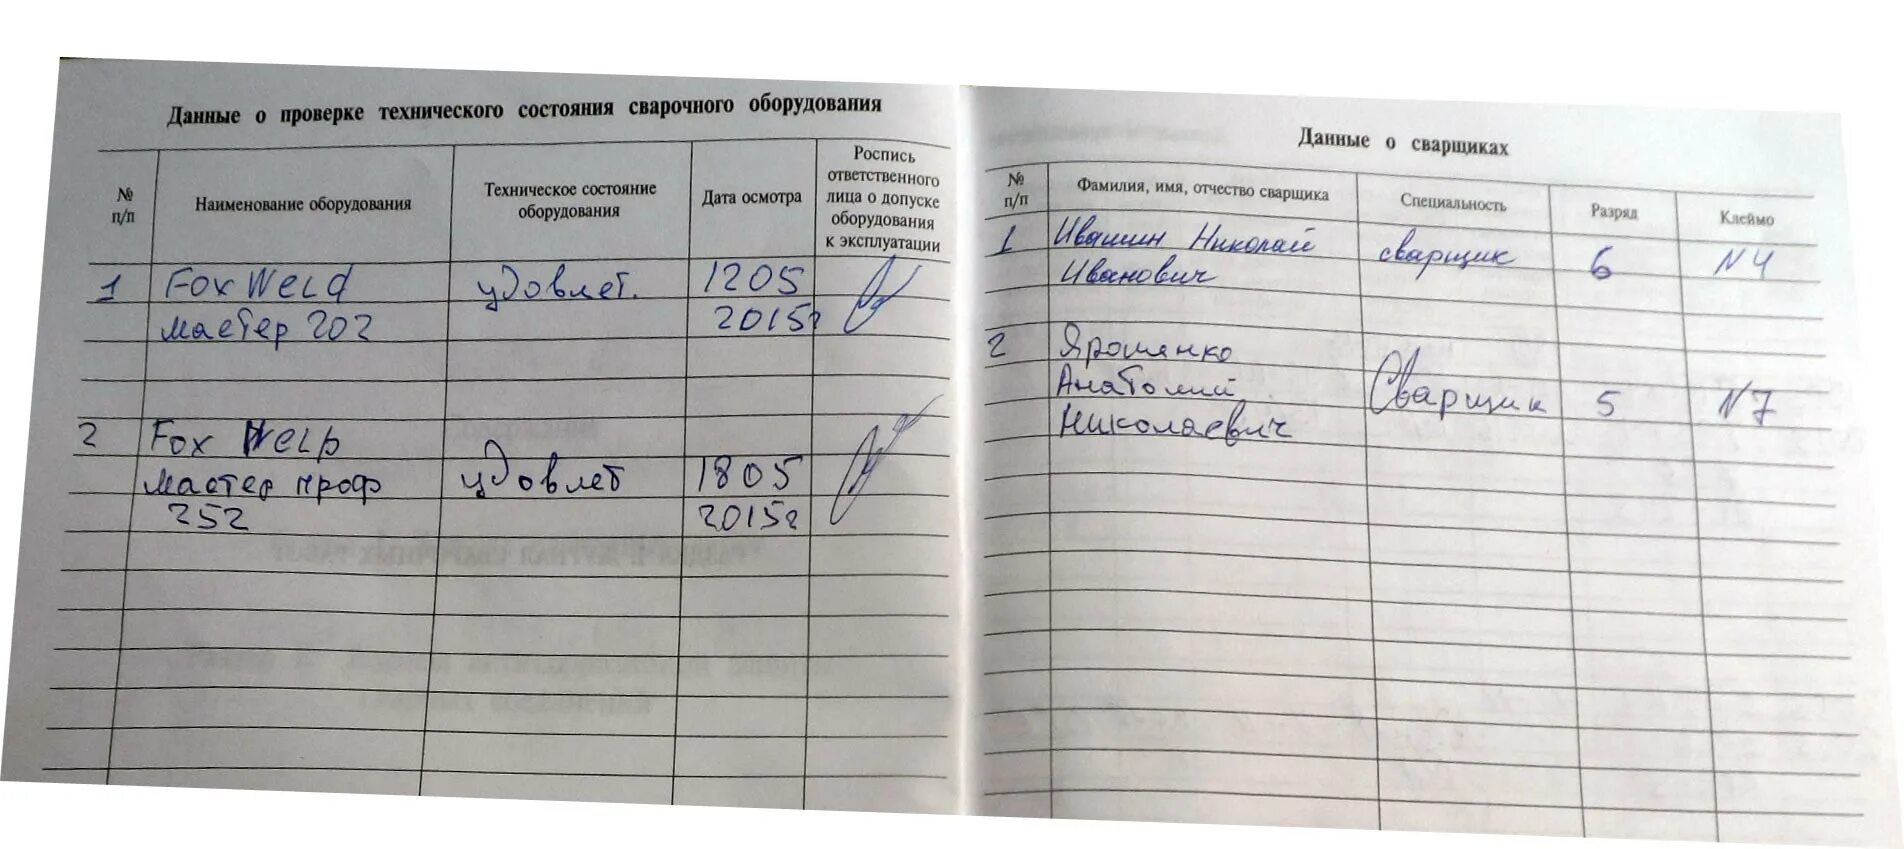 Данные о проверке технического состояния сварочного оборудования
№ п/п
Наименование оборудования
Техническое состояние оборудования
Дата осмотра
Роспись ответственного лица о допуске оборудования к эксплуатации
1 FoxWeld удовлет. 1205
мастер 202 2015г
2 Fox Weld
мастер проф удовлет 1805
252 2015г
Данные о сварщиках
№ п/п
Фамилия, имя, отчество сварщика
Специальность
Разряд
Клеймо
1 Ивашин Николай сварщик 6 N4
Иванович
2 Ярошенко
Анатолий Сварщик 5 N7
Николаевич